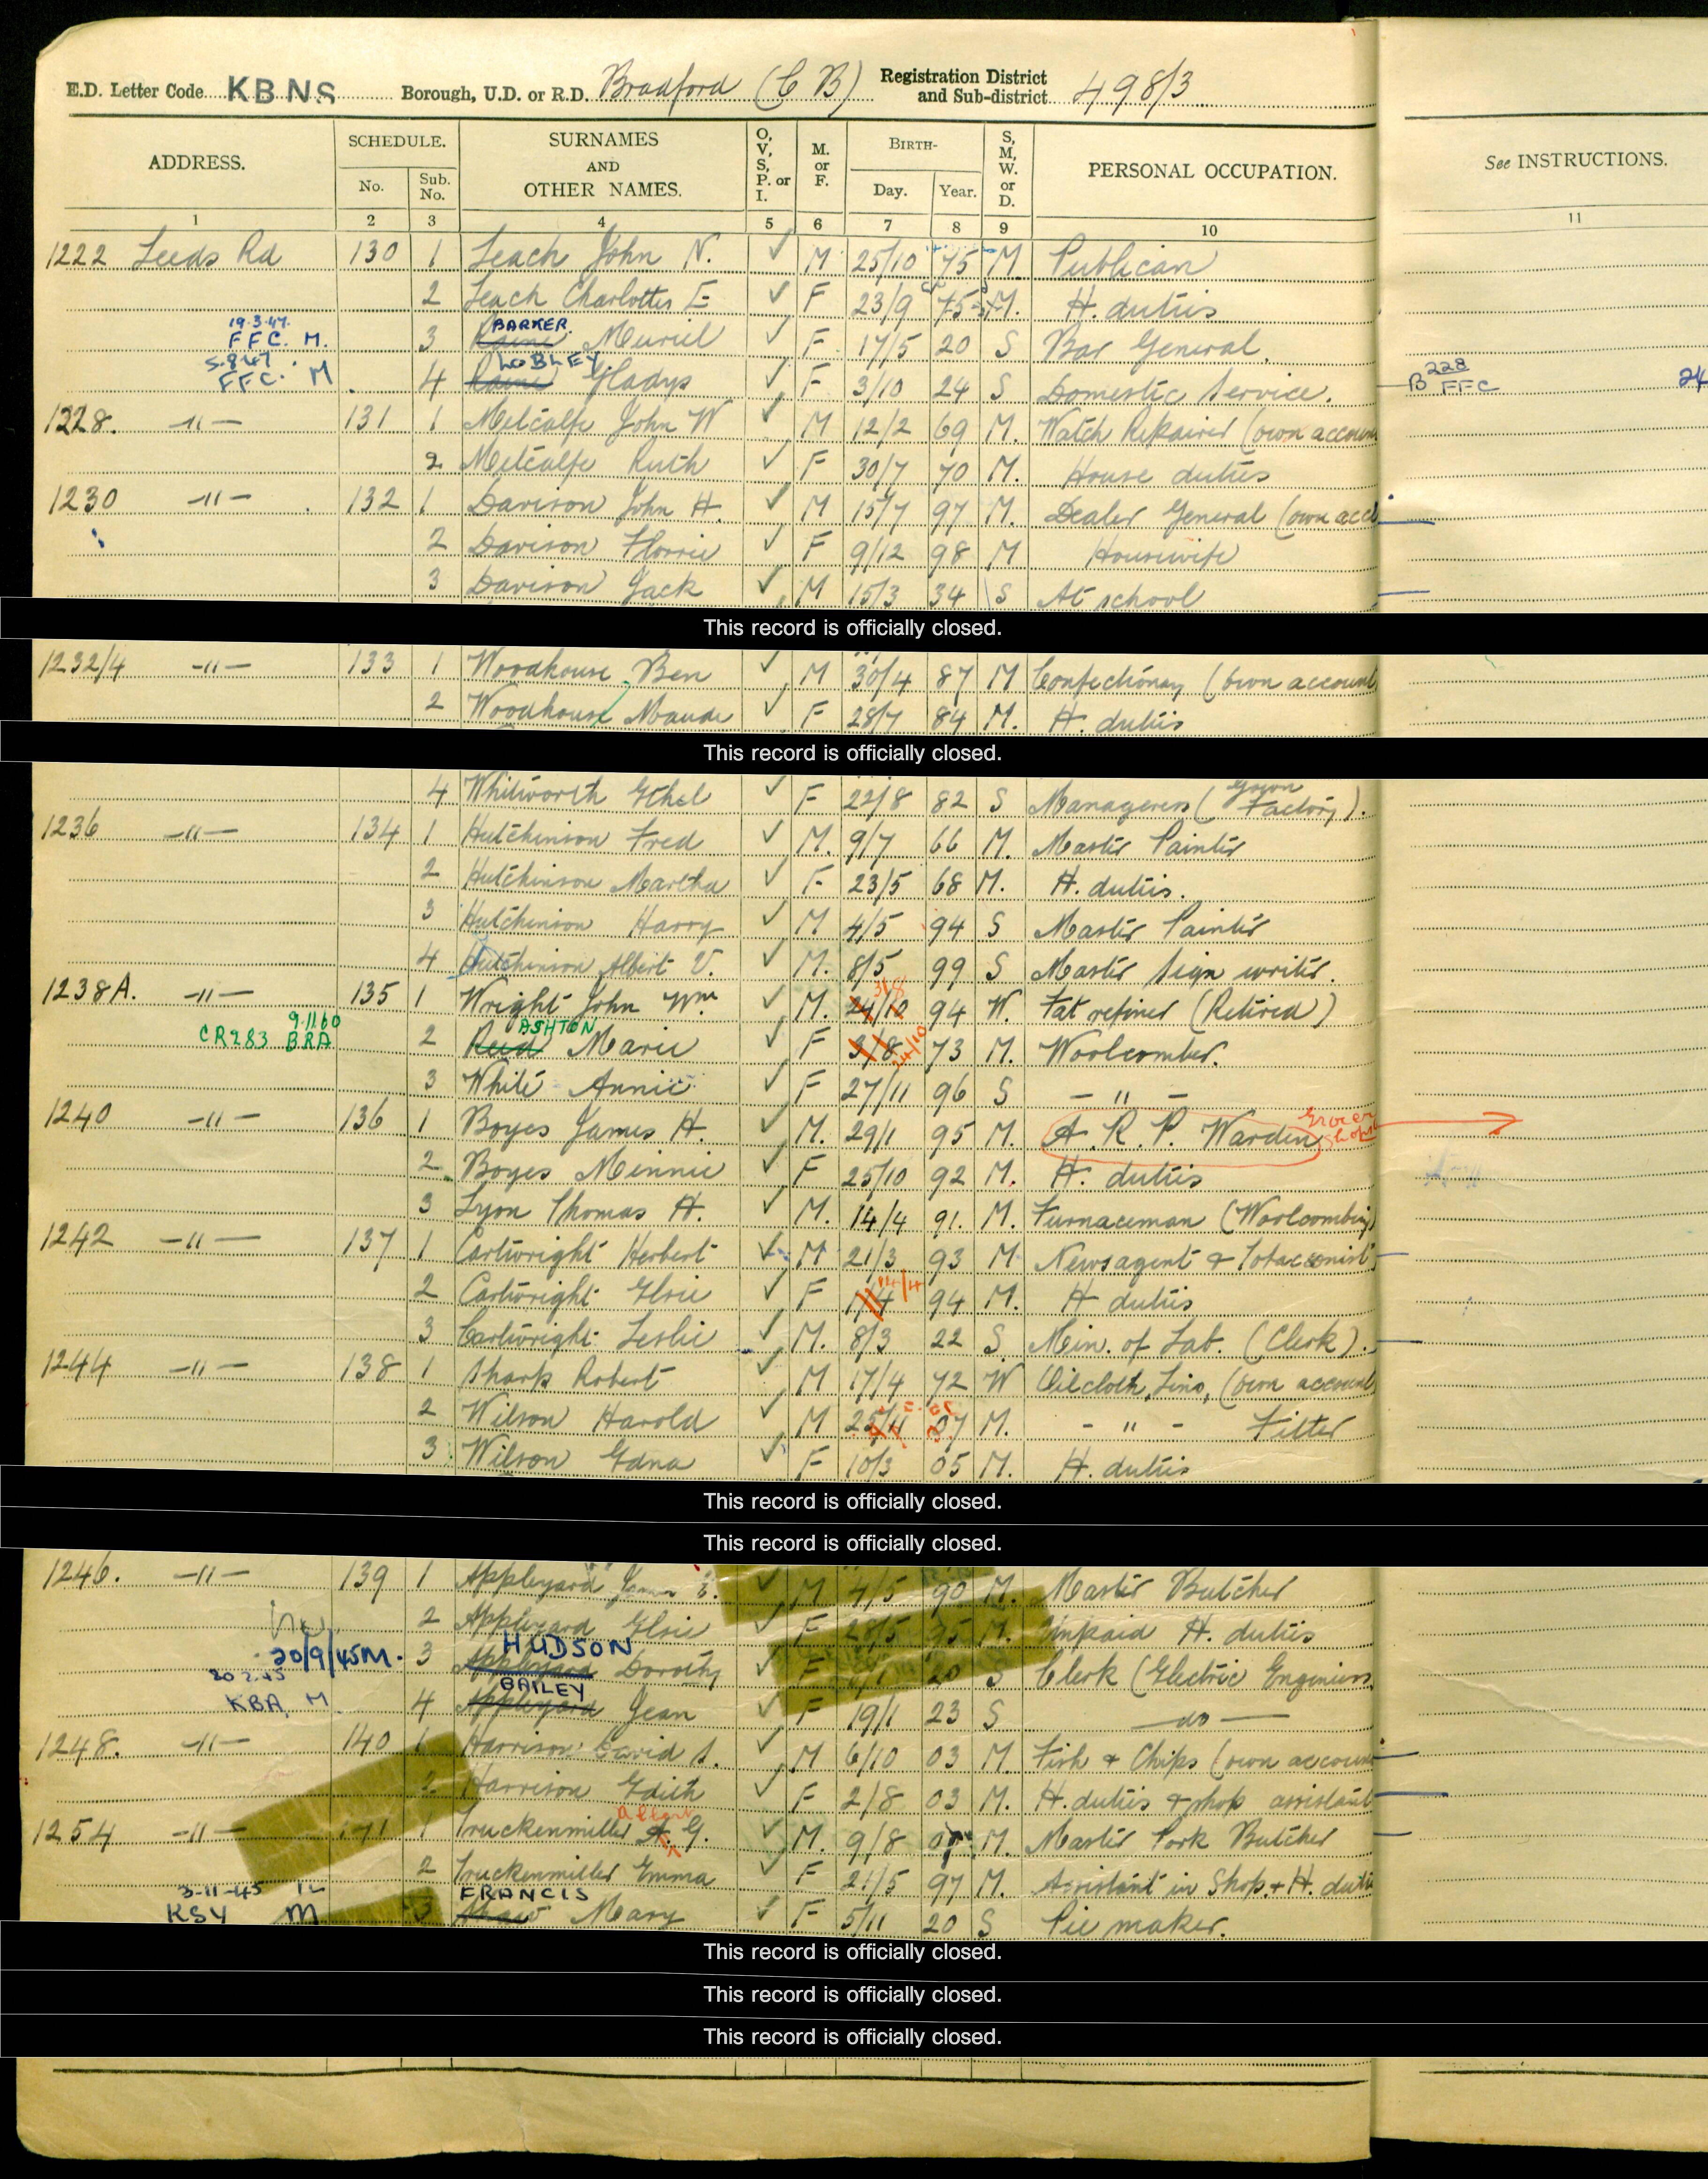 E.D. Letter Code KBNS Borough, U.D. or R.D. Bradford (C B) Registration District and Sub-district 498/3
ADDRESS. SCHEDULE. No. Sub. No. SURNAMES AND OTHER NAMES. O, V, S, P. or I. M. or F. BIRTH- Day. Year. S, M, W. or D. PERSONAL OCCUPATION. See INSTRUCTIONS.
1 2 3 4 5 6 7 8 9 10 11
1222 Leeds Rd 130 1 Leach John N. ✓ M 25/10 75 M Publican
2 Leach Charlotte E ✓ F 23/9 75 M. H. duties
19.3.47. BARKER.
FFC. M. 3 Muriel ✓ F 17/5 20 S Bar General.
5.8.47 LOBLEY
FFC. M 4 Gladys ✓ F 3/10 24 S Domestic Service. B 228 FFC 24
1228. -11- 131 1 Metcalfe John W ✓ M 12/2 69 M. Watch Repairer (own account
2 Metcalfe Ruth ✓ F 30/7 70 M. House duties
1230 -11- 132 1 Davison John H. ✓ M 15/7 97 M. Dealer General (own acc
2 Davison Florrie ✓ F 9/12 98 M Housewife
3 Davison Jack ✓ M 15/3 34 S At school
This record is officially closed.
1232/4 -11- 133 1 Woodhouse Ben ✓ M 30/4 87 M Confectionary (own account
2 Woodhouse Maude ✓ F 28/7 84 M. H. duties
This record is officially closed.
4 Whitworth Ethel ✓ F 22/8 82 S Manageress (Gown Factory).
1236 -11- 134 1 Hutchinson Fred ✓ M. 9/7 66 M. Master Painter
2 Hutchinson Martha ✓ F 23/5 68 M. H. duties.
3 Hutchinson Harry ✓ M 4/5 94 S Master Painter
4 Hutchinson Albert V. ✓ M. 8/5 99 S Master Sign writer.
1238A. -11- 135 1 Wright John Wm ✓ M. 24/10 3/8 94 W. Fat refiner (Retired)
9.11.60 ASHTON
CR283 BRA 2 Reed Marie ✓ F 3/8 24/10 73 M. Woolcomber.
3 White Annie ✓ F 27/11 96 S - " -
1240 -11- 136 1 Boyes James H. ✓ M. 29/1 95 M. A. R. P. Warden Grocer shop
2 Boyes Minnie ✓ F 25/10 92 M. H. duties
3 Lyon Thomas H. ✓ M. 14/4 91. M. Furnaceman (Woolcombing)
1242 -11- 137 1 Cartwright Herbert ✓ M 21/3 93 M Newsagent & Tobacconist
2 Cartwright Elsie ✓ F 14/4 94 M. H duties
3 Cartwright Leslie ✓ M. 8/3 22 S Min. of Lab. (Clerk).
1244 -11- 138 1 Sharp Robert ✓ M 17/4 72 W Oilcloth, Lino, (own account
2 Wilson Harold ✓ M 25/11 07 M. - " - Fitter
3 Wilson Edna ✓ F 10/3 05 M. H. duties
This record is officially closed.
This record is officially closed.
1246. -11- 139 1 Appleyard ✓ M 4/5 90 M. Master Butcher
2 Appleyard Elsie ✓ F 28/5 95 M. Unpaid H. duties
HUDSON
20/9/45 M. 3 Appleyard Dorothy ✓ F 20 S Clerk (Electric Engineers
BAILEY
KBA M 4 Appleyard Jean ✓ F 19/1 23 S — do —
1248. -11- 140 1 Harrison David S. ✓ M 6/10 03 M. Fish & Chips (own account
2 Harrison Edith ✓ F 2/8 03 M. H. duties & shop assistant
Albert
1254 -11- 141 1 Truckenmiller A. G. ✓ M. 9/8 M. Master Pork Butcher
2 Truckenmiller Emma ✓ F 21/5 97 M. Assistant in Shop & H. dutie
3-11-45 FRANCIS
KSY M 3 Shaw Mary ✓ F 5/11 20 S Pie maker.
This record is officially closed.
This record is officially closed.
This record is officially closed.